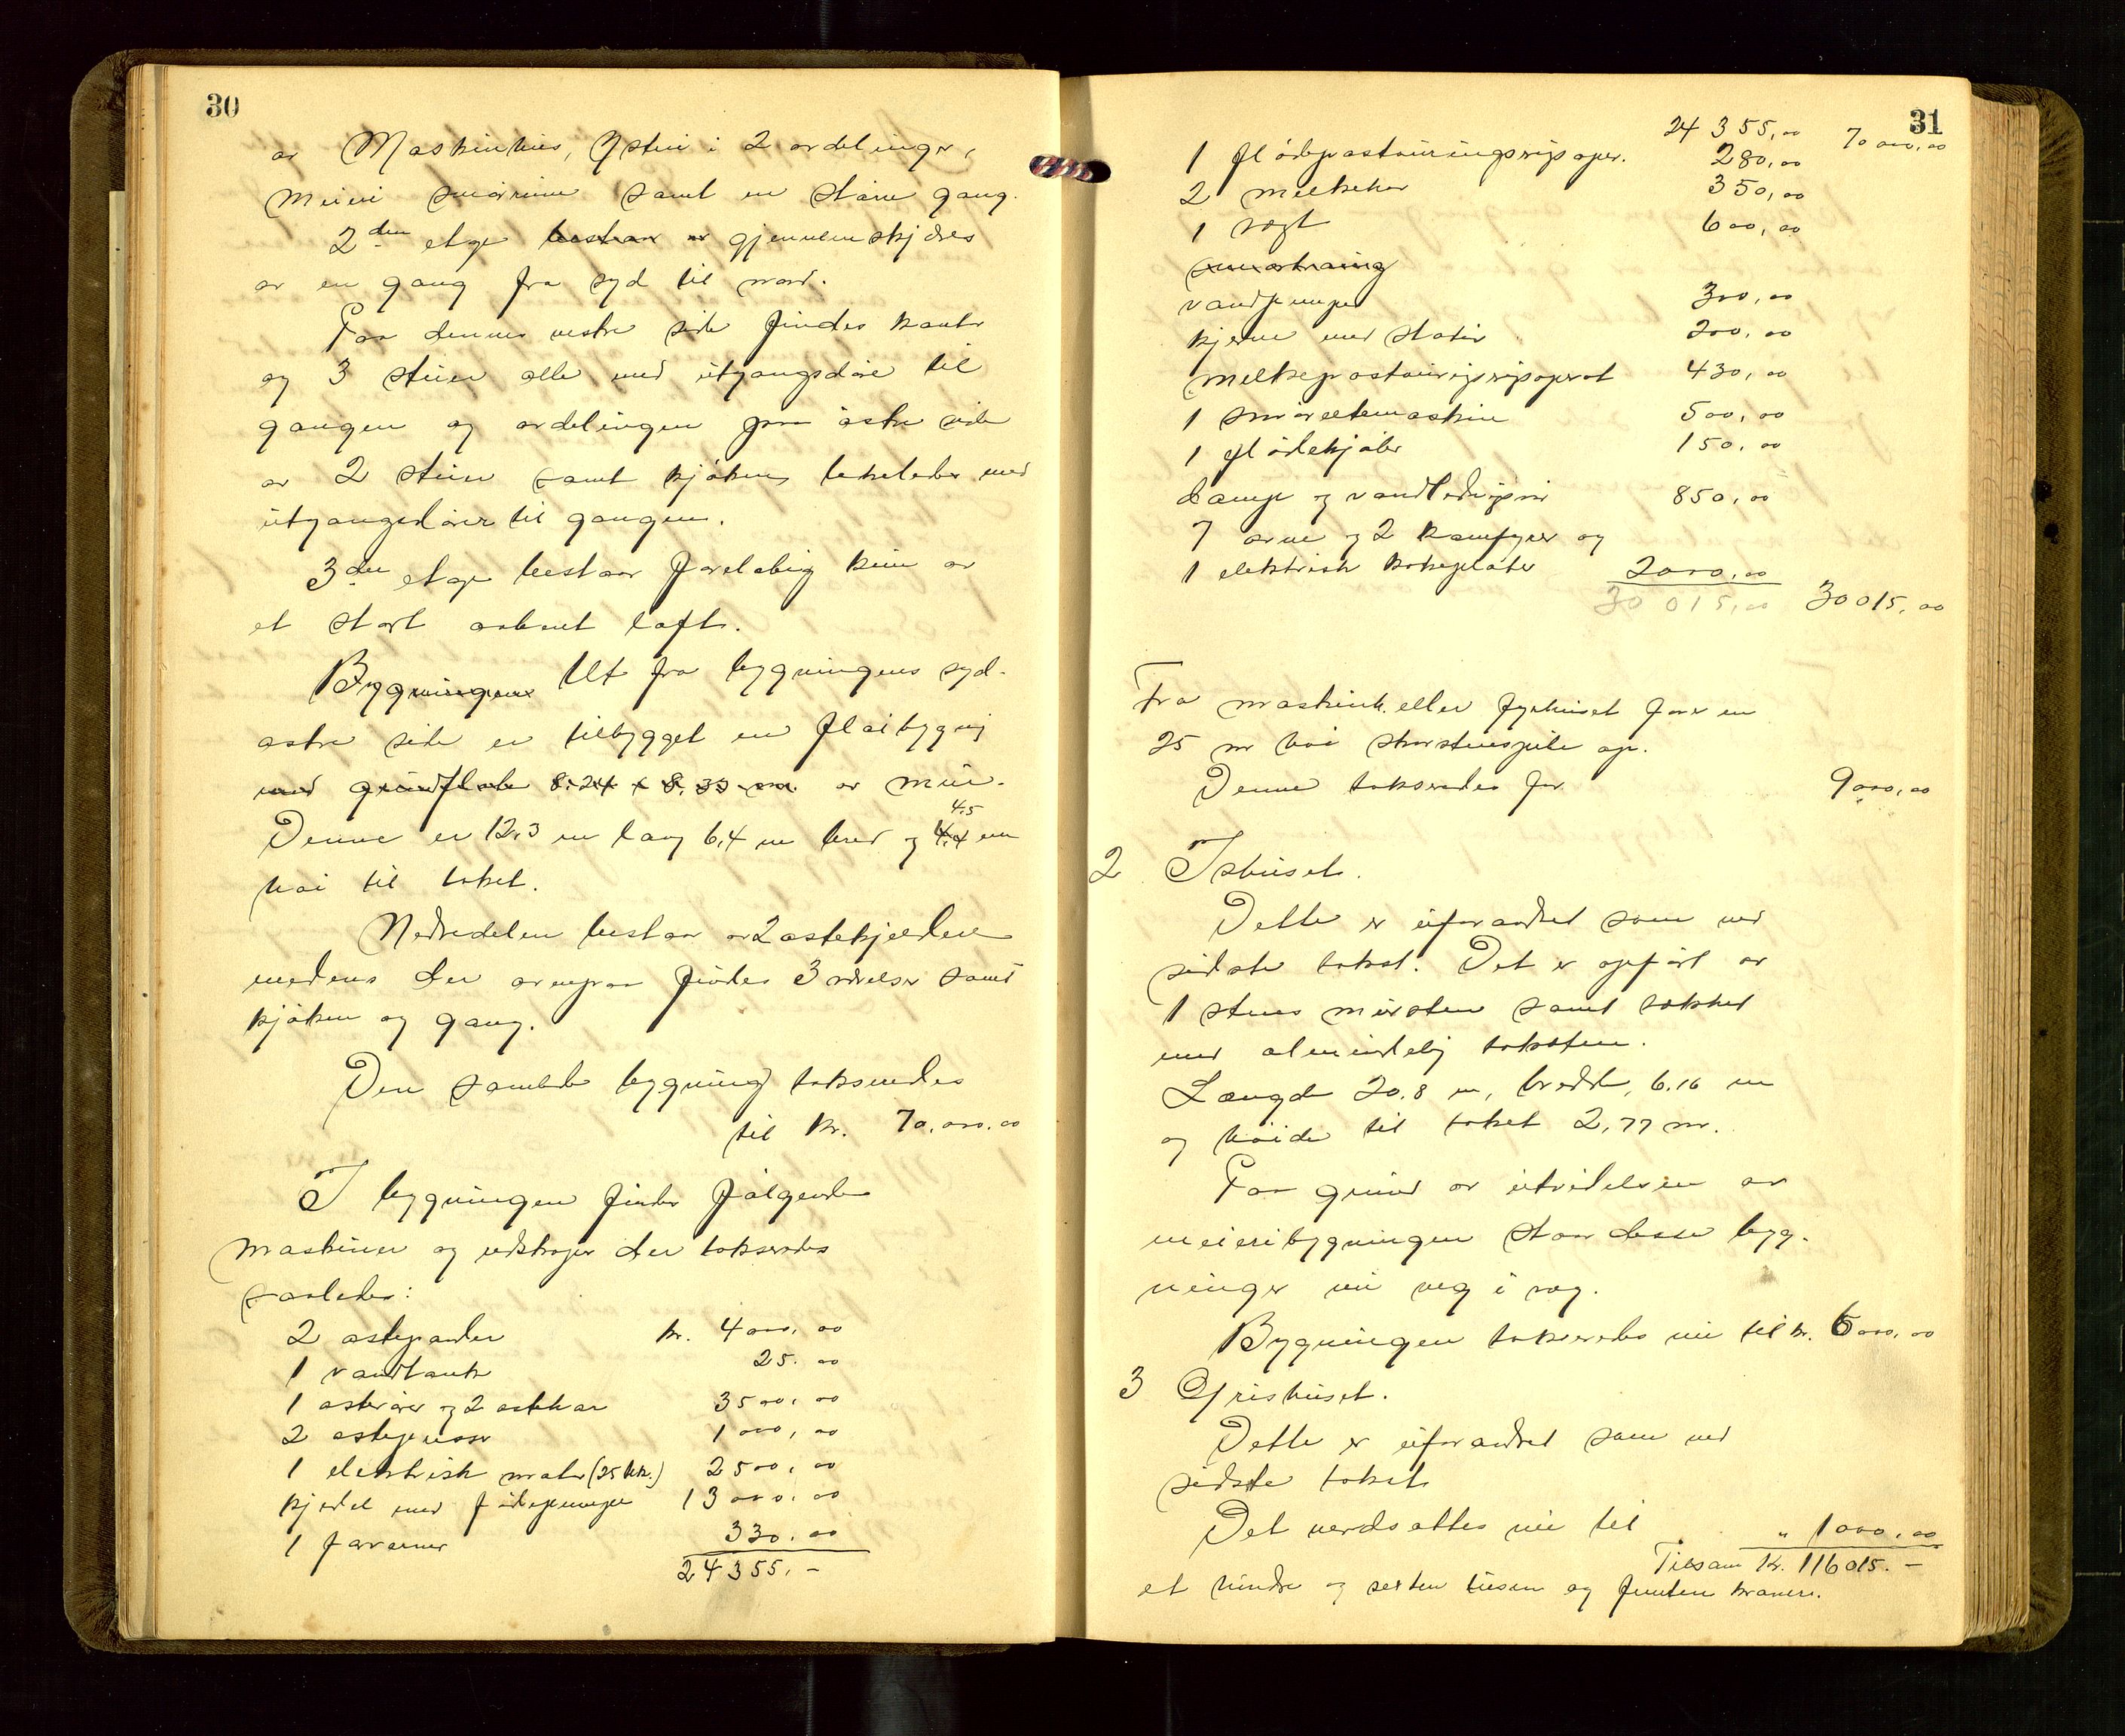 30
av Maskinhus, Ysteri i 2 avdelinger,
meieri smørrum samt en større gang.
2den etage bestaar er gjennemskjæres
av en gang fra syd til nord.
Paa dennes vestre side findes kontor
og 3 stuer alle med utgangsdøre til
gangen og avdelingen paa østre side
av 2 stuer samt kjøkken, med
utgangsdører til gangen.
3die etage bestaar foreløbig kun av
et stort aapent loft.
Bygningen Ut fra bygningens syd-
østre side er tilbygget en fløibygning
med grundflate 8.24 x 8.33 m. av mur.
Denne er 12,3 m lang 6,4 m bred og 4,4 4,5 m
høi til taket.
Nedredelen bestaar av 2 ostekjeldere
medens der ovenpaa findes 3 værelser samt
kjøken og gang.
Den samlede bygning takseredes
til kr. 70.000.00
I bygningen findes følgende
maskiner og redskaper der takseredes
saaledes:
2 ostepander kr. 4000,00
1 vandtank 25.00
1 osterører og 2 ostekar 3500,00
2 ostepresser 1000,00
1 elektrisk motor (25 hk.) 2500,00
kjedel med fødepumpe 13000.00
1 forvarmer 330.00
24355.-
31
24 355,00 70 000,00
1 fløtepastøuriseringsaper. 280,00
2 melkekar 350,00
1 vegt 600,00
vandpumpe 300,00
kjerne med stativ 200,00
melkepastøuriseringsaperat 430,00
1 smøreltemaskin 500,00
1 fløtekjøler 150,00
damp og vandledninger 850,00
7 ovne og 2 komfyrer og
1 elektrisk kokeplater 2000,00
30 015,00 30 015,00
Fra maskinh. eller fyrhuset fører en
25 m høi skorstenspipe op.
Denne takseredes for 9000,00
2 Ishuset.
Dette er uforandret som ved
sidste takst. Det er opført av
1 stens mursten samt tækket
med almindelig taksten.
Længde 20,8 m, bredde, 6.16 m
og høide til taket 2,77 m.
Paa grund av utvidelsen av
meieribygningen staar disse byg-
ninger nu veg i veg.
Bygningen takseredes nu til kr. 6000,00
3 Grishuset.
Dette er uforandret som ved
sidste takst
Det verdsattes nu til " 1000,00
Tilsam Kr. 116015.-
et hundre og seksten tusen og femten kroner.